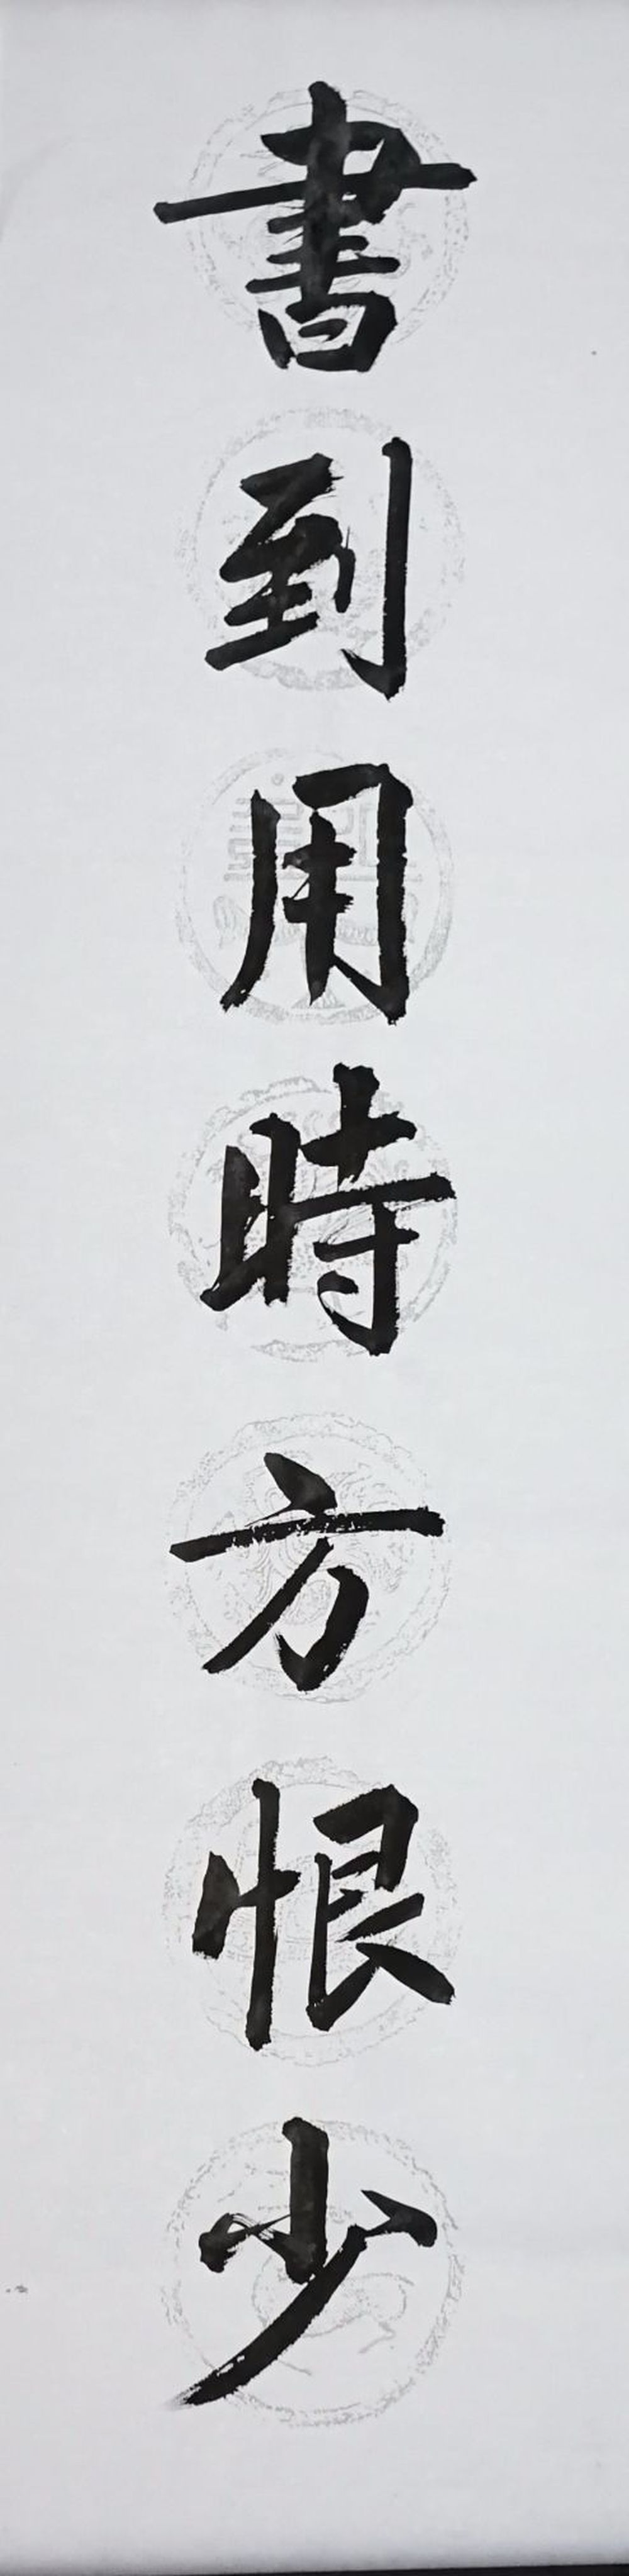 書到用時方恨少